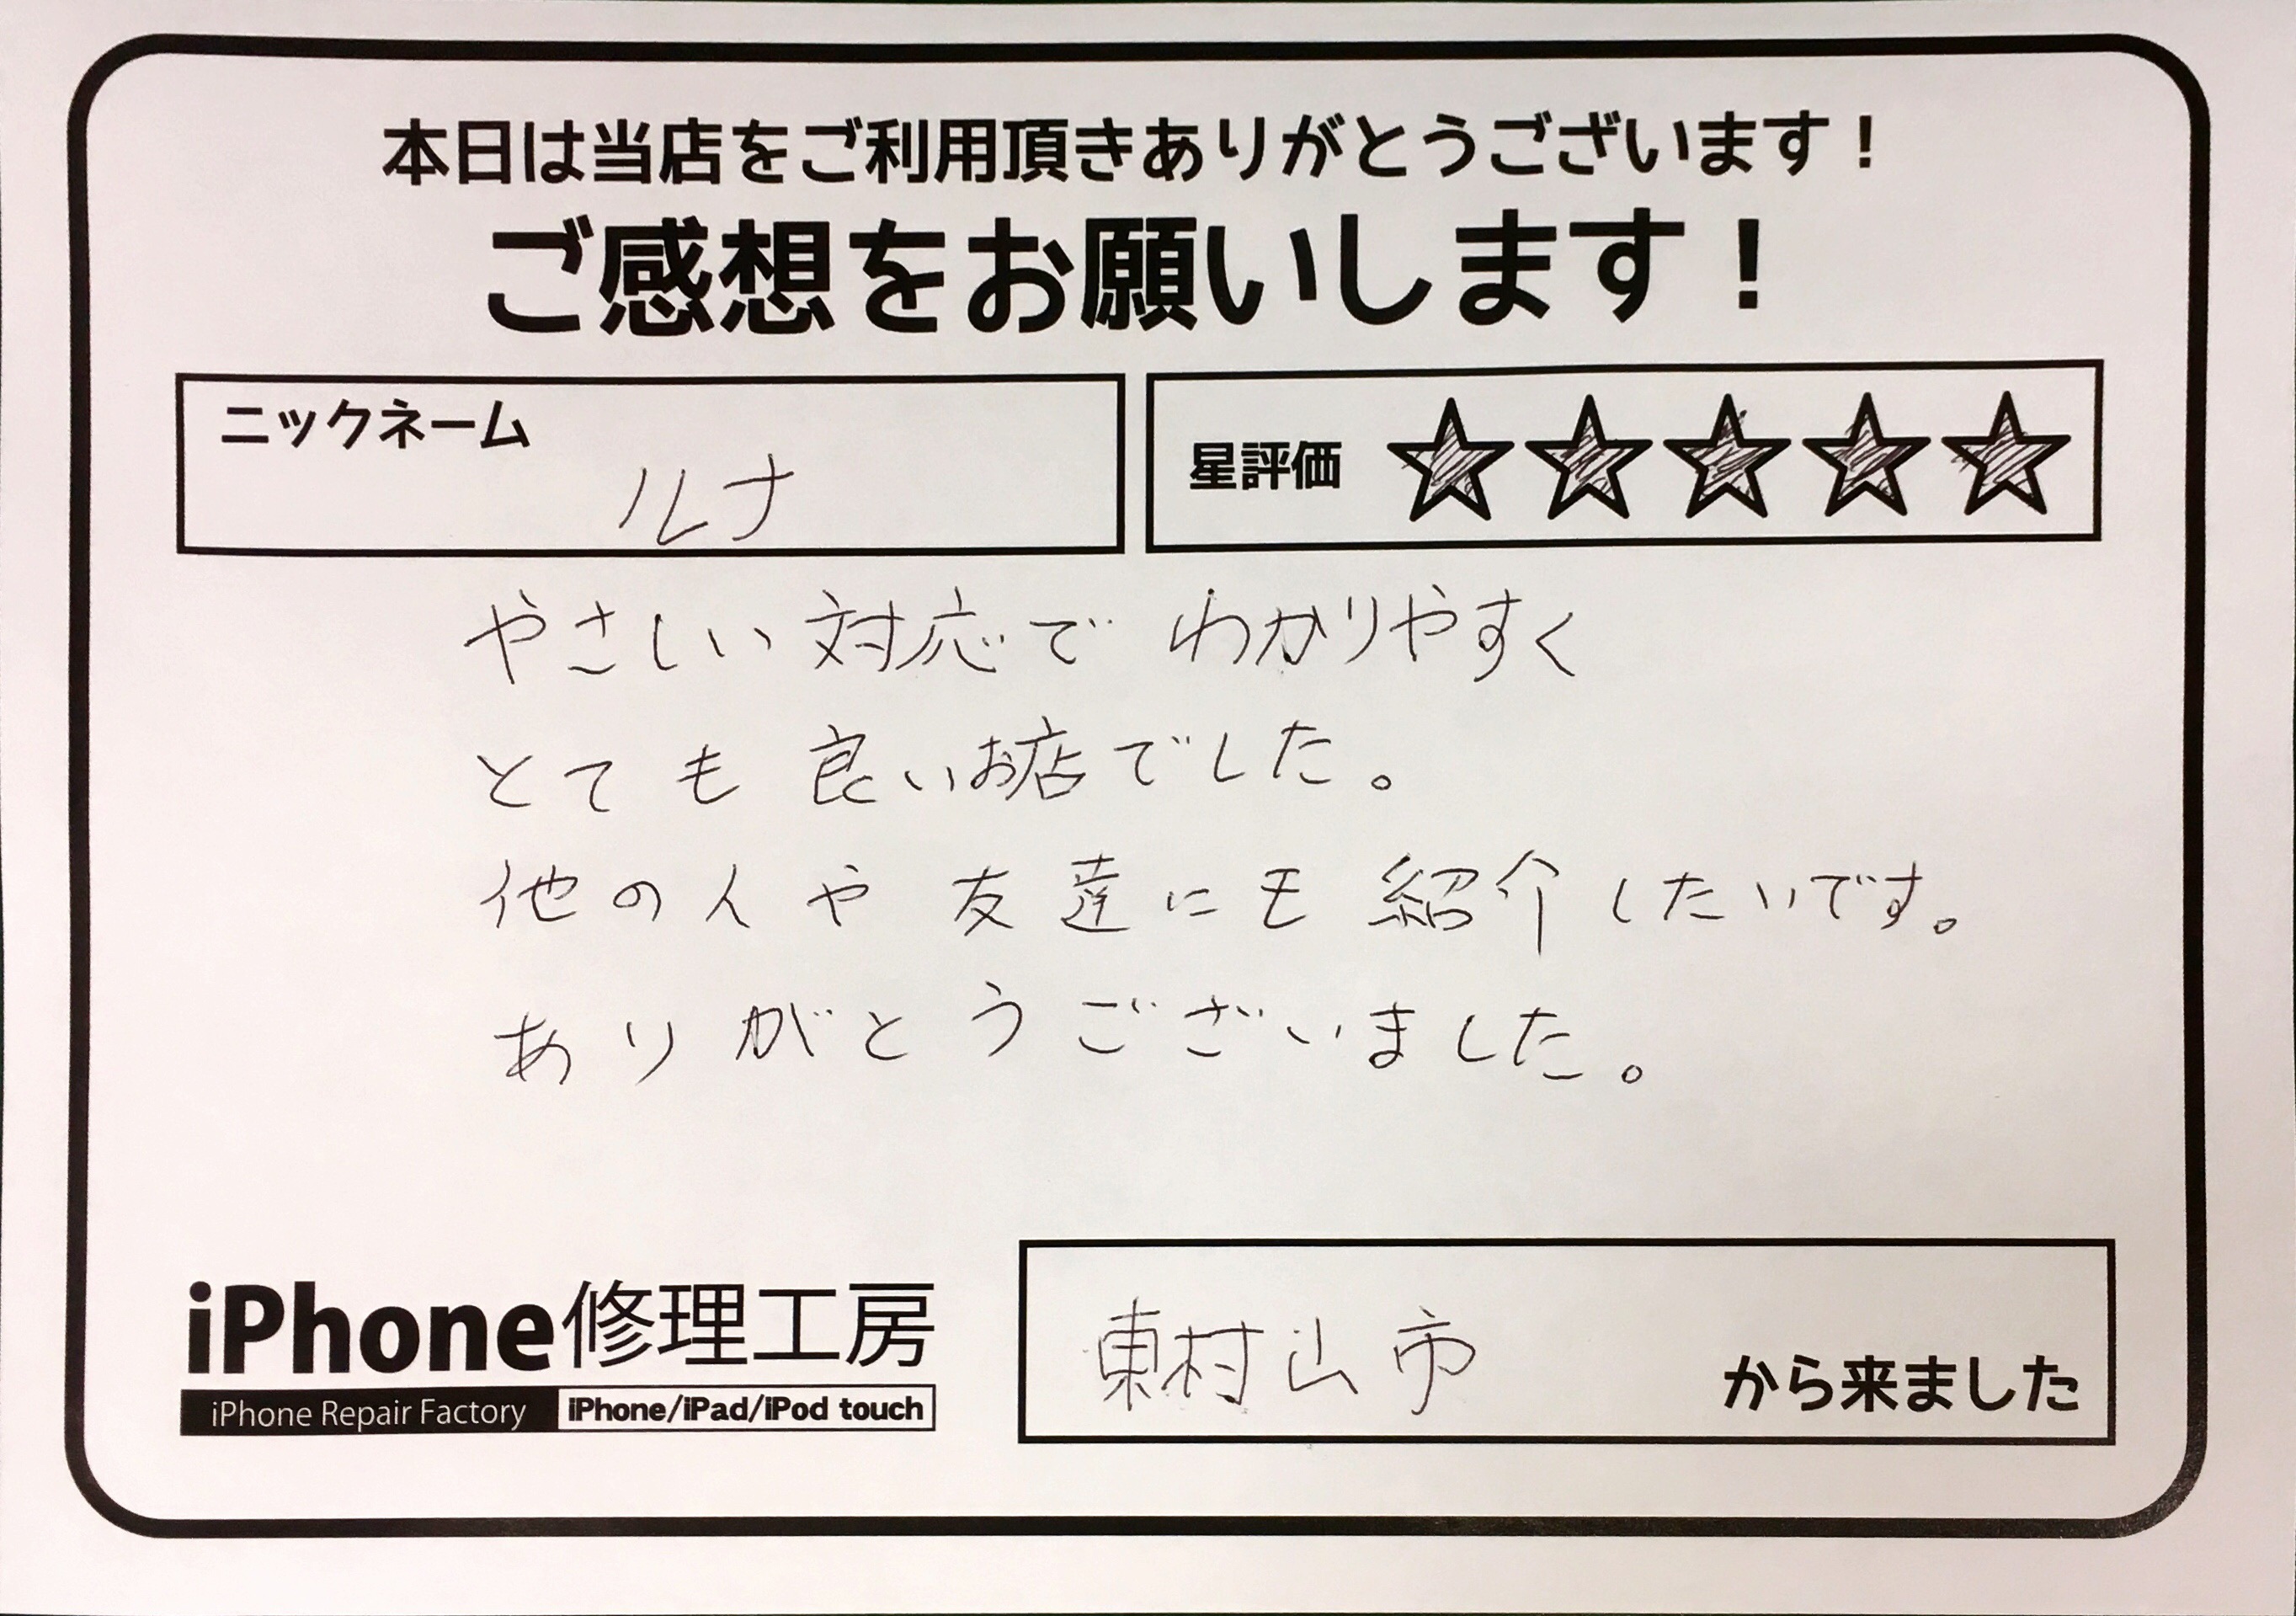 本日は当店をご利用頂きありがとうございます！
ご感想をお願いします！
ニックネーム
ルナ
星評価 ★★★★★
やさしい対応で わかりやすく
とても良いお店でした。
他の人や友達にも紹介したいです。
ありがとうございました。
iPhone修理工房
iPhone Repair Factory iPhone/iPad/iPod touch
東村山市 から来ました